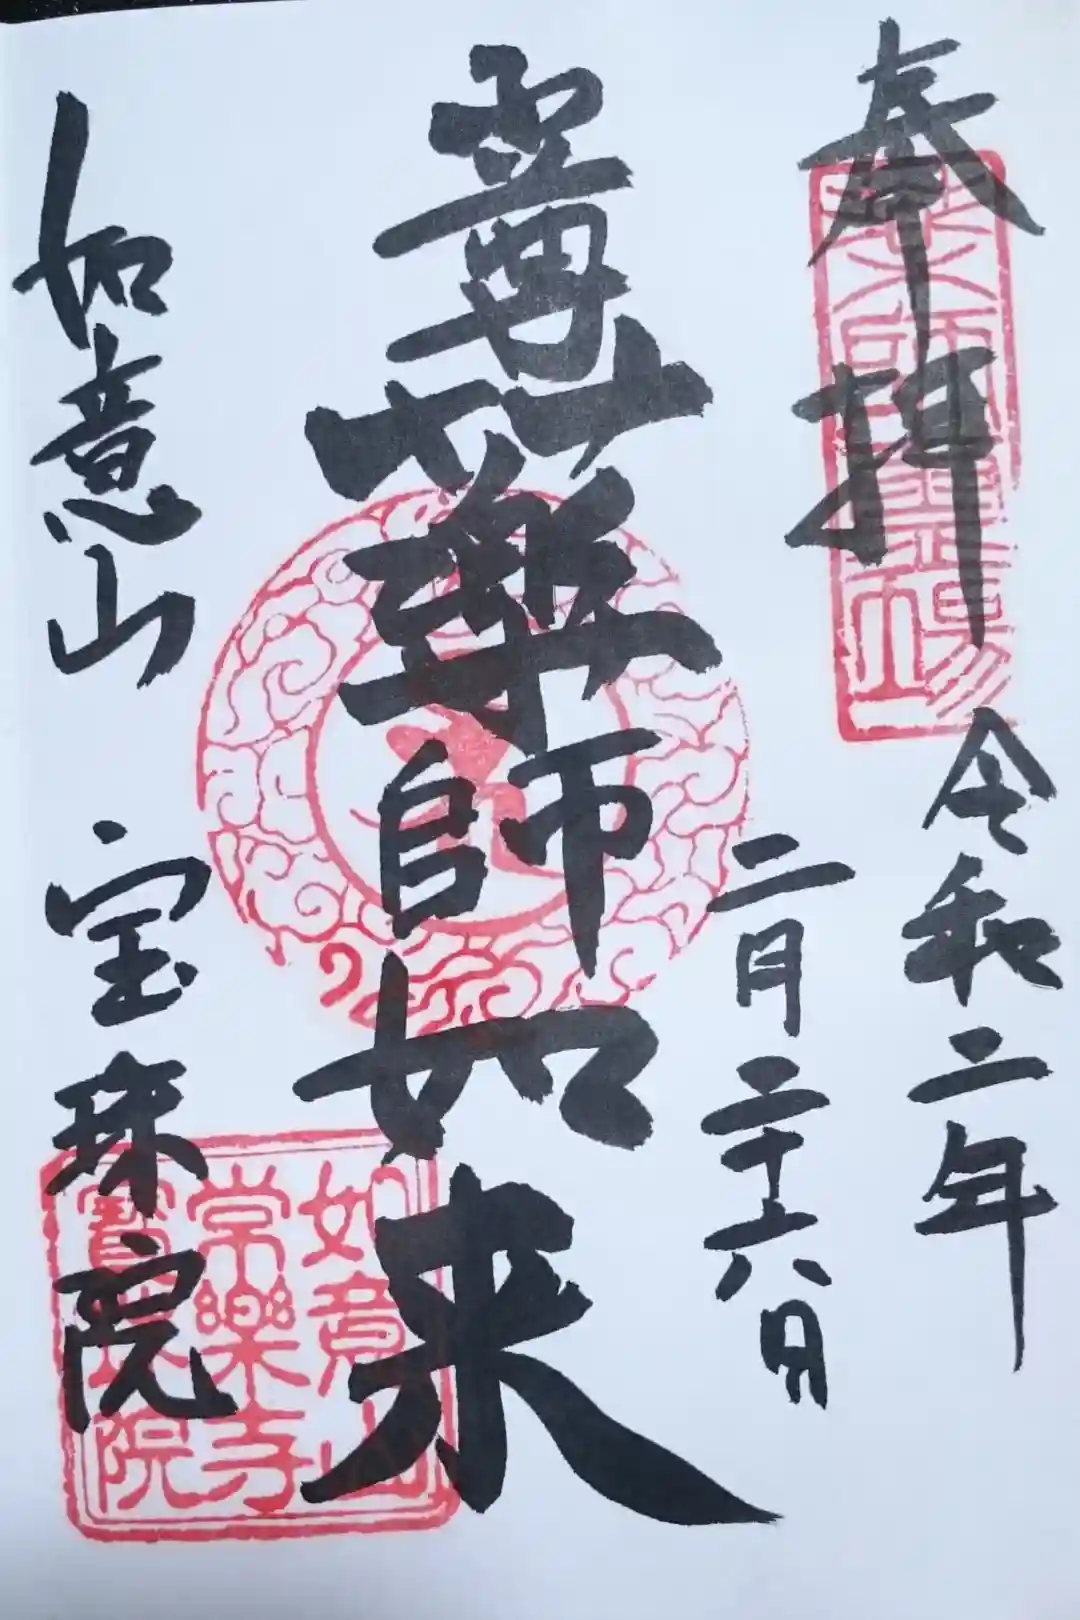 奉拝
令和二年
二月二十六日
薬師如来
如意山 宝珠院
如意山
常樂寺
寶珠院